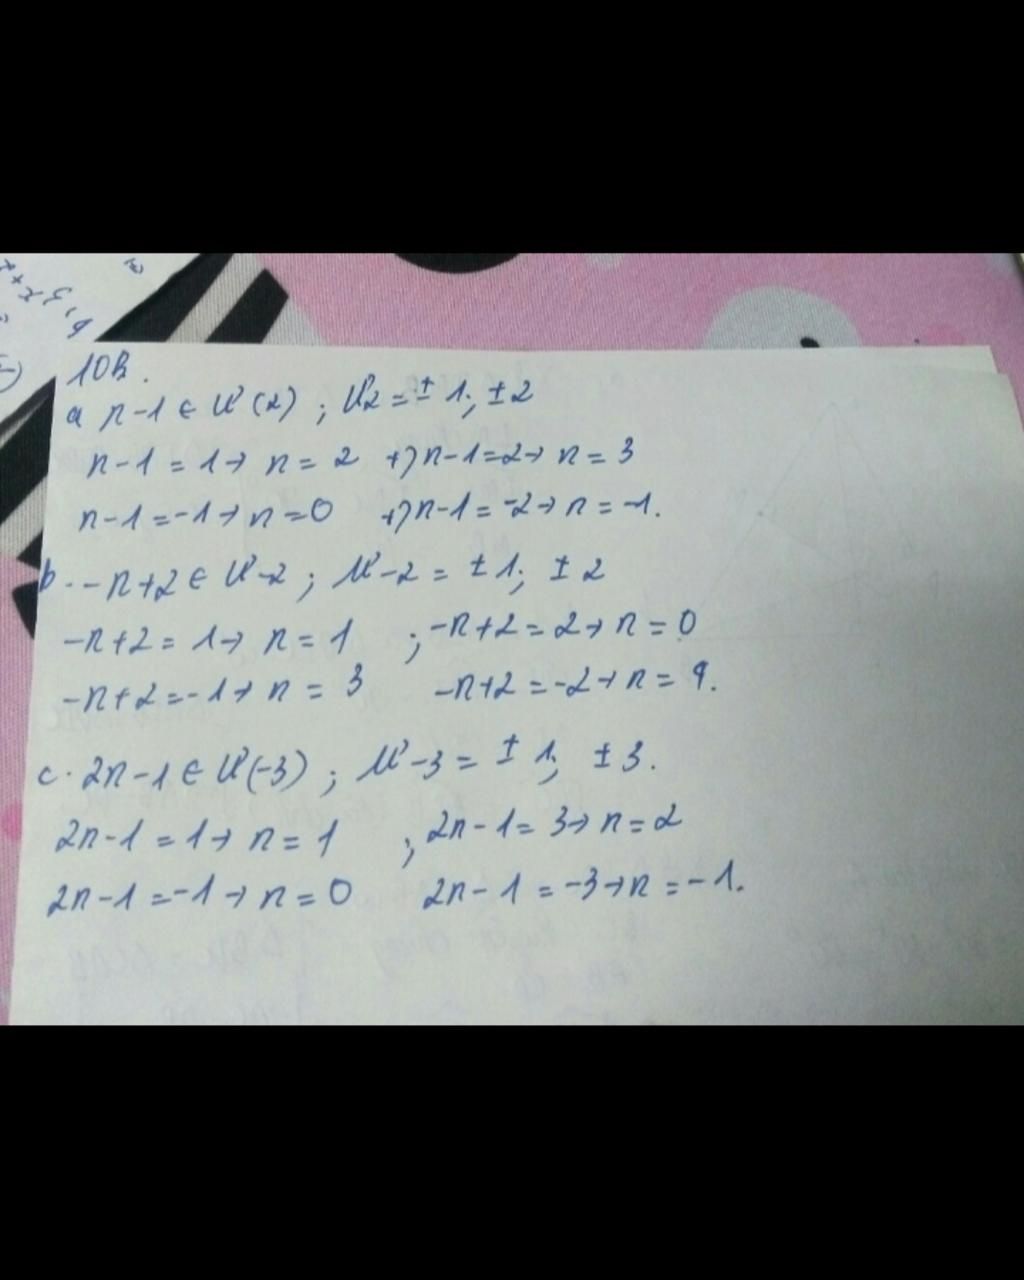 10B.
a n-1 ∈ Ư(2) ; Ư2 = ± 1; ± 2
n-1 = 1 → n = 2 +) n-1 = 2 → n = 3
n-1 = -1 → n = 0 +) n-1 = -2 → n = -1.
b. -n+2 ∈ Ư-2 ; Ư-2 = ± 1; ± 2
-n+2 = 1 → n = 1 ; -n+2 = 2 → n = 0
-n+2 = -1 → n = 3 -n+2 = -2 → n = 4.
c. 2n-1 ∈ Ư(-3) ; Ư-3 = ± 1; ± 3.
2n-1 = 1 → n = 1 ; 2n-1 = 3 → n = 2
2n-1 = -1 → n = 0 2n-1 = -3 → n = -1.